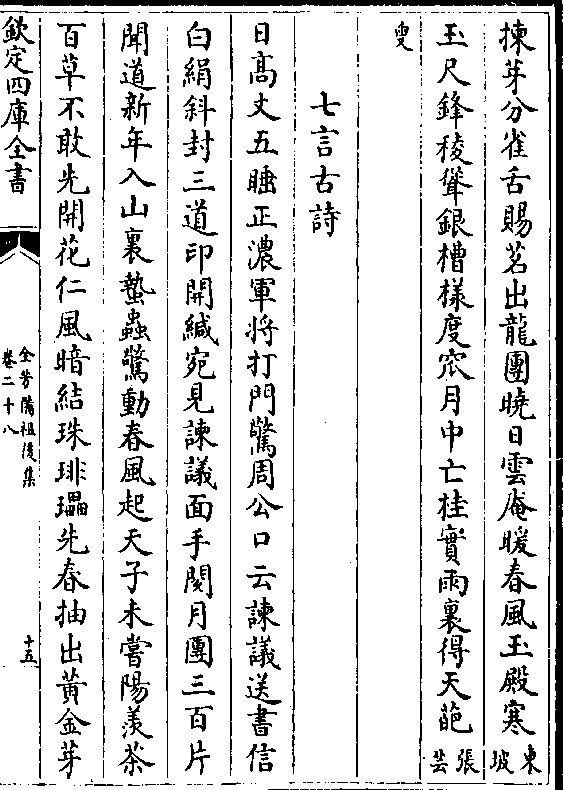 揀芽分雀舌賜茗出龍團曉日雲庵暖春風玉殿寒東坡
玉尺鋒稜聳銀槽樣度窊月中亡桂實雨裏得天葩張芸
叟
七言古詩
日高丈五睡正濃軍將打門驚周公口云諫議送書信
白絹斜封三道印開緘宛見諫議面手閱月團三百片
聞道新年入山裏蟄蟲驚動春風起天子未嘗陽羡茶
百草不敢先開花仁風暗結珠琲瓃先春抽出黃金芽
欽定四庫全書
全芳備祖後集
卷二十八
十五